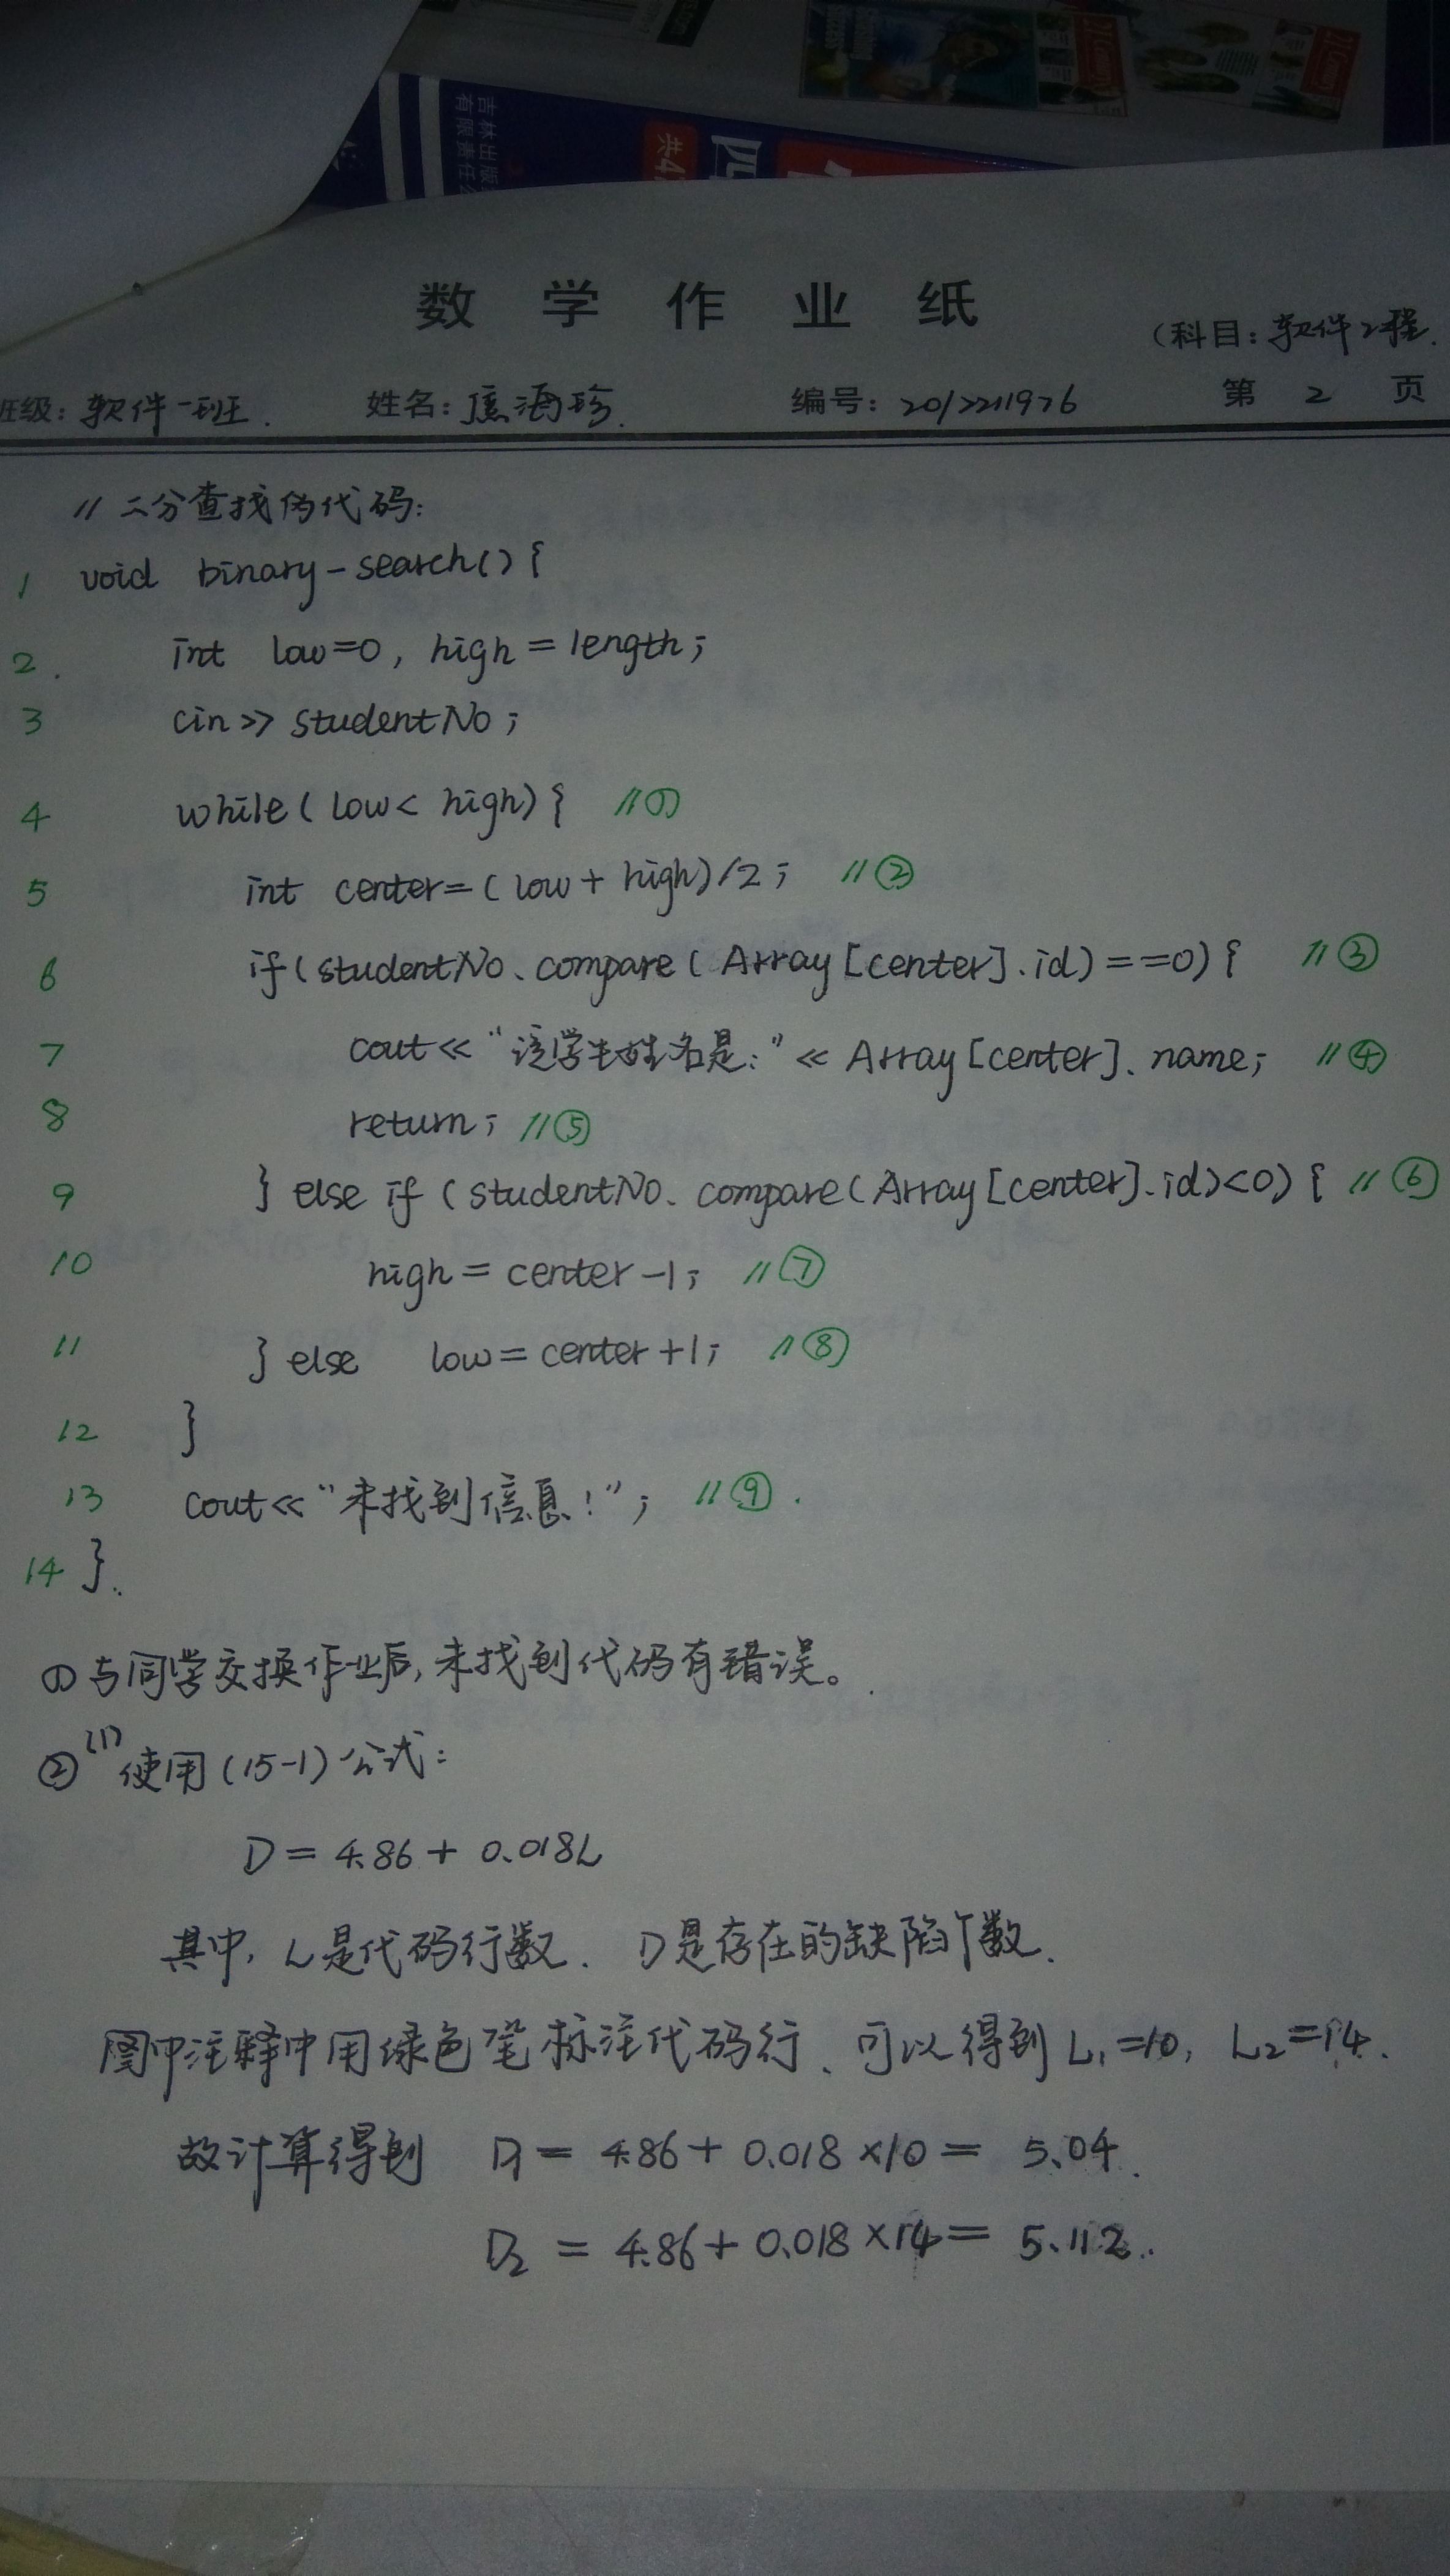 吉林出版
有限责任公
共4
四
数 学 作 业 纸
(科目: 软件工程.
班级: 软件一班. 姓名: 焦海珍. 编号: 2012211976 第 2 页
// 二分查找伪代码:
1 void binary-search() {
2. int low=0, high = length;
3 cin >> studentNo;
4 while( low < high) { //①
5 int center= ( low + high)/2; //②
6 if( studentNo.compare ( Array [center].id) ==0) { //③
7 cout << "该学生姓名是:" << Array [center].name; //④
8 return; //⑤
9 } else if ( studentNo.compare( Array [center].id)<0) { //⑥
10 high = center -1; //⑦
11 } else low = center +1; //⑧
12 }
13 cout << "未找到信息!"; //⑨.
14 }.
① 与同学交换作业后, 未找到代码有错误。
② (1) 使用 (15-1) 公式:
D = 4.86 + 0.018L
其中, L是代码行数. D是存在的缺陷个数.
图中注释中用绿色笔标注代码行、可以得到 L₁=10, L₂=14.
故计算得到 D₁ = 4.86 + 0.018 ×10 = 5.04.
D₂ = 4.86 + 0.018 ×14 = 5.112.